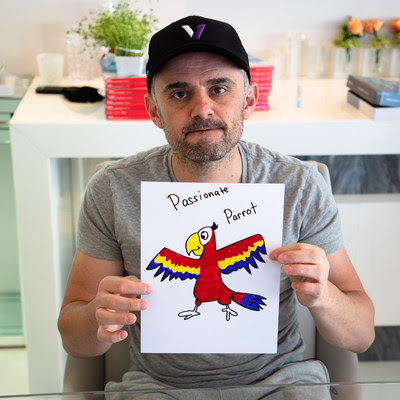 Passionate
Parrot